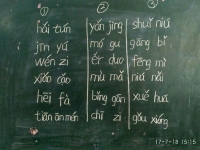 ① ② ③
hǎi tún yǎn jīng shuǐ niú
jīn yú mó gu gāng bǐ
wén zi ěr duo fēng mì
xiǎo cǎo mù mǎ niú nǎi
hēi fà bǐng gān xuě huā
tiān ān mén chǐ zi gǒu xióng
17-7-18 15:15